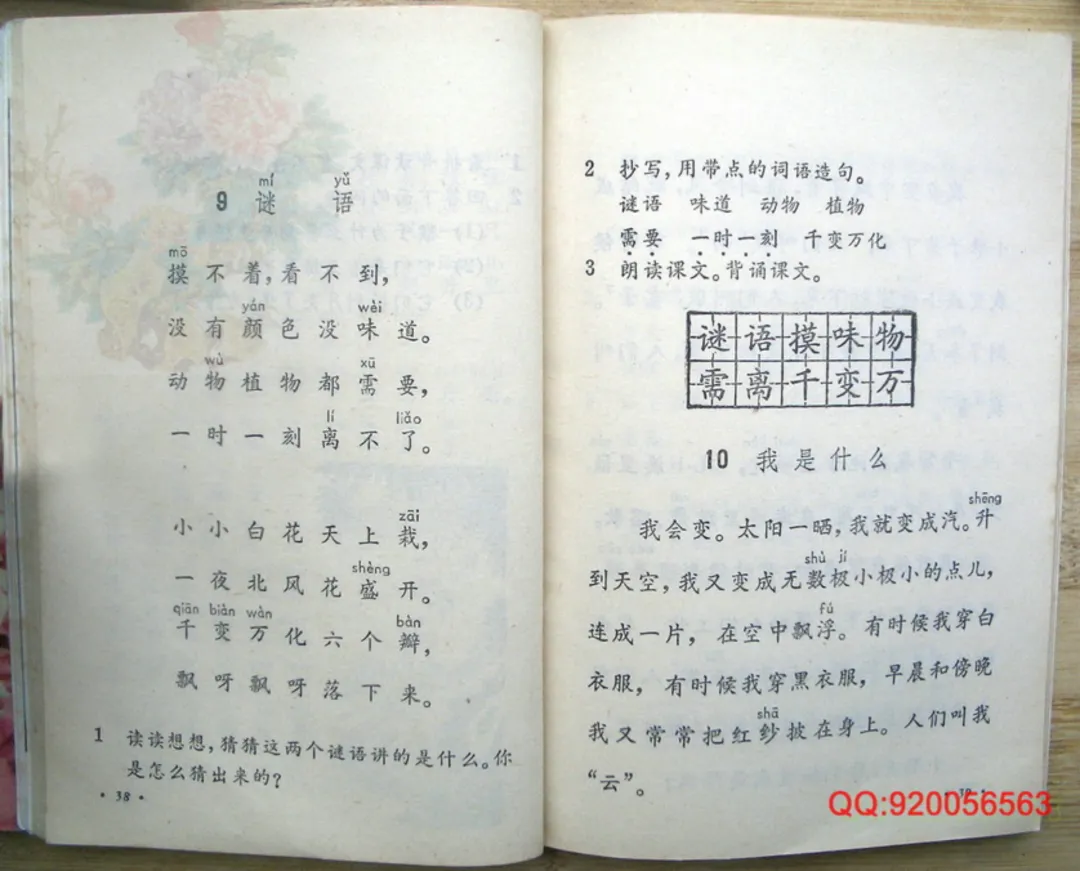 mí yǔ
9 谜 语
mō
摸不着,看不到,
yán wèi
没有颜色没味道。
wù xū
动物植物都需要,
lí liǎo
一时一刻离不了。
zāi
小小白花天上栽,
shèng
一夜北风花盛开。
qiān biàn wàn bàn
千变万化六个瓣,
飘呀飘呀落下来。
1 读读想想,猜猜这两个谜语讲的是什么。你
是怎么猜出来的?
·38·
2 抄写,用带点的词语造句。
谜语 味道 动物 植物
需要 一时一刻 千变万化
3 朗读课文。背诵课文。
谜语摸味物
需离千变万
10 我是什么
shēng
我会变。太阳一晒,我就变成汽。升
shù jí
到天空,我又变成无数极小极小的点儿,
fú
连成一片,在空中飘浮。有时候我穿白
衣服,有时候我穿黑衣服,早晨和傍晚
shā
我又常常把红纱披在身上。人们叫我
“云”。
QQ:920056563